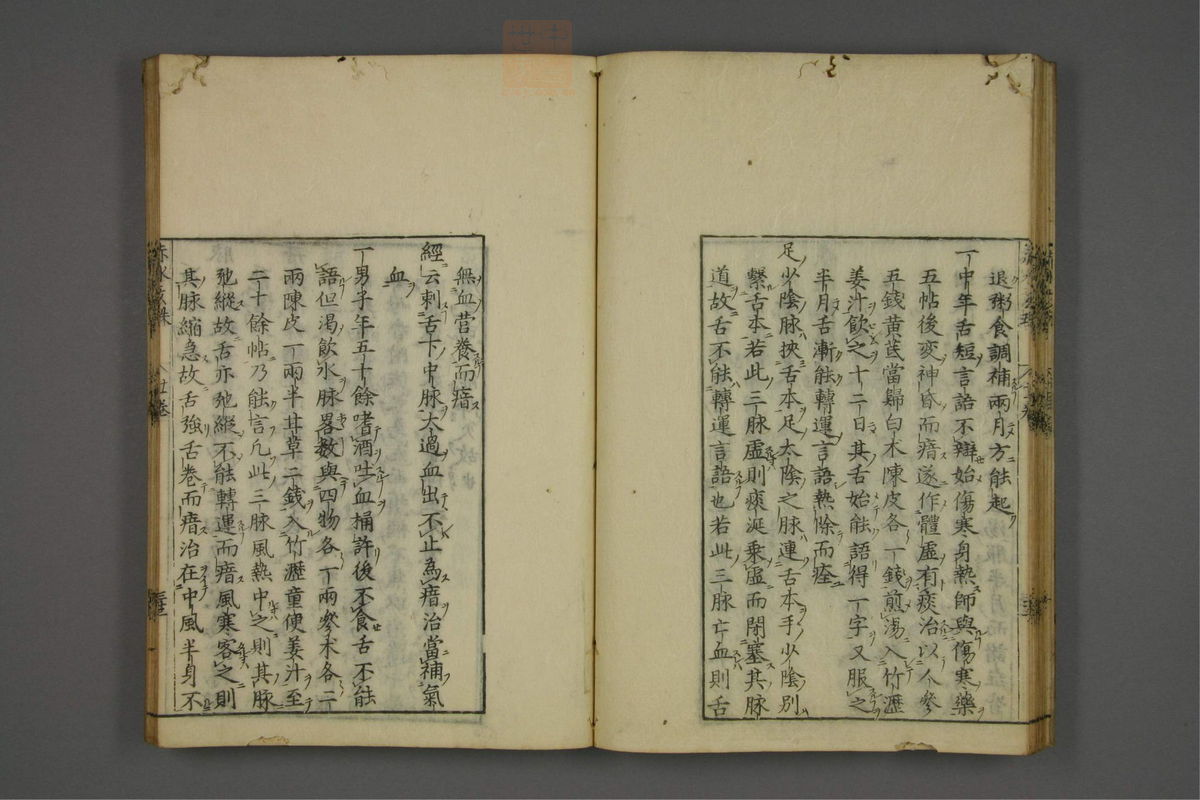 退粥食調補兩月方能起
一中年舌短言語不辯始傷寒身熱師與傷寒藥
五帖後変神昏而瘖遂作體虚有痰治以人參
五錢黄芪當歸白朮陳皮各一錢煎湯入竹瀝
姜汁飲之十二日其舌始能語得一字又服之
半月舌漸能轉運言語熱除而痊
足少陰脉挾舌本足太陰之脉連舌本手少陰別
繫舌本若此三脉虚則痰涎乗虚而閉塞其脉
道故舌不能轉運言語也若此三脉亡血則舌
無血营養而瘖
經云刺舌下中脉太過血出不止為瘖治當補氣
血
一男子年五十餘嗜酒吐血桶許後不食舌不能
語但渇飲水脉畧数與四物各一兩參朮各二
兩陳皮一兩半甘草二錢入竹瀝童便姜汁至
二十餘帖乃能言凡此三脉風熱中之則其脉
弛縱故舌亦弛縱不能轉運而瘖風寒客之則
其脉縮急故舌強舌卷而瘖治在中風半身不